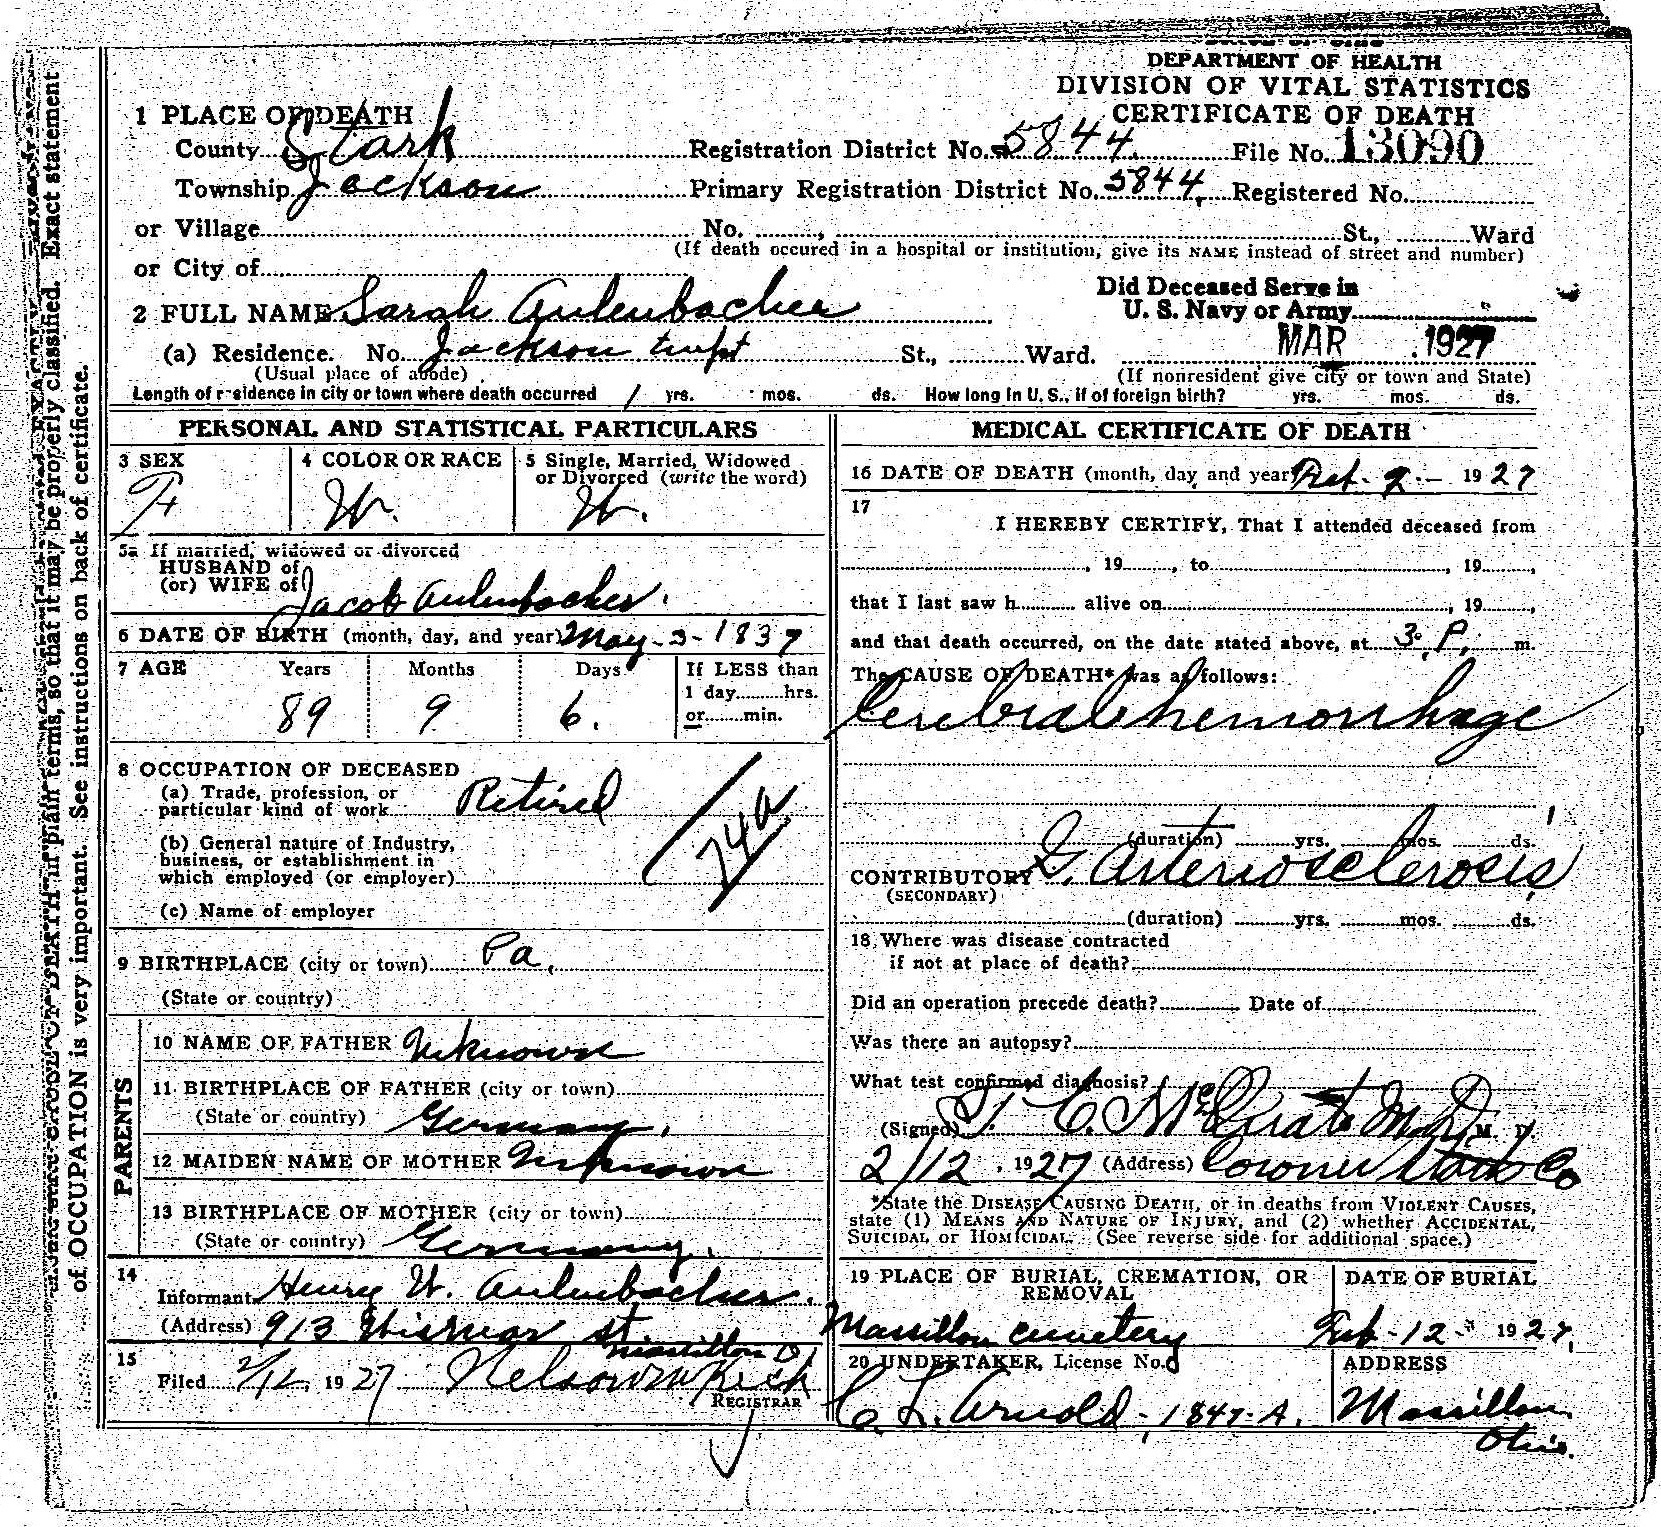 DEPARTMENT OF HEALTH
DIVISION OF VITAL STATISTICS
CERTIFICATE OF DEATH
1 PLACE OF DEATH
County Stark Registration District No. 5844 File No. 13090
Township Jackson Primary Registration District No. 5844 Registered No.
or Village No. , St., Ward
(If death occured in a hospital or institution, give its NAME instead of street and number)
or City of
2 FULL NAME Sarah Aulenbacher
Did Deceased Serve in
U. S. Navy or Army
(a) Residence. No. Jackson twpt St., Ward. MAR 1927
(Usual place of abode) (If nonresident give city or town and State)
Length of residence in city or town where death occurred / yrs. mos. ds. How long in U. S., if of foreign birth? yrs. mos. ds.
PERSONAL AND STATISTICAL PARTICULARS
3 SEX 4 COLOR OR RACE 5 Single, Married, Widowed
or Divorced (write the word)
F W. W.
5a If married, widowed or divorced
HUSBAND of
(or) WIFE of Jacob Aulenbacher.
6 DATE OF BIRTH (month, day, and year) May-3-1837
7 AGE Years Months Days If LESS than
1 day hrs.
or min.
89 9 6.
8 OCCUPATION OF DECEASED
(a) Trade, profession, or
particular kind of work Retired
74a
(b) General nature of Industry,
business, or establishment in
which employed (or employer)
(c) Name of employer
9 BIRTHPLACE (city or town) Pa.
(State or country)
PARENTS
10 NAME OF FATHER Unknown
11 BIRTHPLACE OF FATHER (city or town)
(State or country) Germany.
12 MAIDEN NAME OF MOTHER Unknown
13 BIRTHPLACE OF MOTHER (city or town)
(State or country) Germany.
14
Informant Henry W. Aulenbacher.
(Address) 913 St.
Massillon O
15
Filed 2/12, 1927 Nelson
REGISTRAR
MEDICAL CERTIFICATE OF DEATH
16 DATE OF DEATH (month, day and year) Feb. 9.- 1927
17
I HEREBY CERTIFY, That I attended deceased from
, 19 , to , 19 ,
that I last saw h alive on , 19 ,
and that death occurred, on the date stated above, at 3. P. m.
The CAUSE OF DEATH* was as follows:
Cerebral hemorrhage
(duration) yrs. mos. ds.
CONTRIBUTORY G. arteriosclerosis
(SECONDARY)
(duration) yrs. mos. ds.
18 Where was disease contracted
if not at place of death?
Did an operation precede death? Date of
Was there an autopsy?
What test confirmed diagnosis?
(Signed) T. C. McQuate M.D. M. D.
2/12, 1927 (Address) Coroner Stark Co
*State the DISEASE CAUSING DEATH, or in deaths from VIOLENT CAUSES,
state (1) MEANS AND NATURE OF INJURY, and (2) whether ACCIDENTAL,
SUICIDAL or HOMICIDAL. (See reverse side for additional space.)
19 PLACE OF BURIAL, CREMATION, OR
REMOVAL
DATE OF BURIAL
Massillon cemetery Feb-12- 1927,
20 UNDERTAKER, License No. ADDRESS
C. L. Arnold, 1847-A. Massillon
Ohio.
so that it may be properly classified. Exact statement
of OCCUPATION is very important. See instructions on back of certificate.